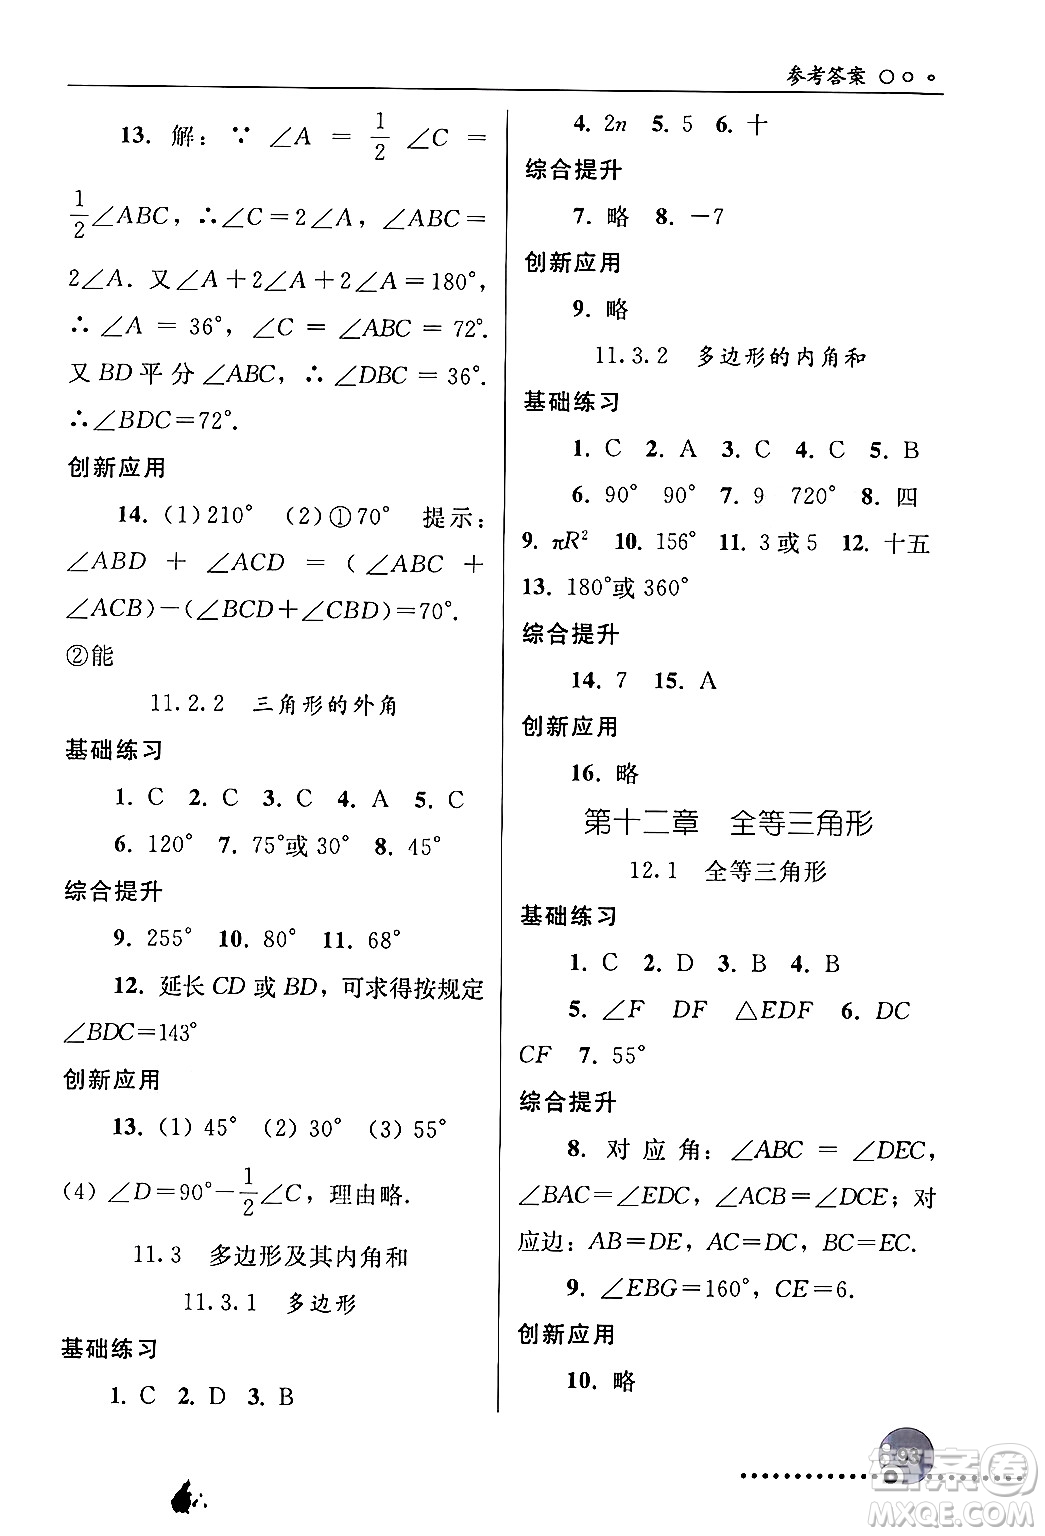 参考答案
13. 解：∵ ∠A = 1/2 ∠C =
1/2∠ABC，∴∠C=2∠A，∠ABC=
2∠A. 又∠A+2∠A+2∠A=180°,
∴ ∠A = 36°, ∠C = ∠ABC = 72°.
又BD平分∠ABC，∴∠DBC=36°.
∴∠BDC=72°.
创新应用
14. (1)210° (2)①70° 提示：
∠ABD + ∠ACD = (∠ABC +
∠ACB)-(∠BCD+∠CBD)=70°.
②能
11.2.2 三角形的外角
基础练习
1. C 2. C 3. C 4. A 5. C
6. 120° 7. 75°或30° 8. 45°
综合提升
9. 255° 10. 80° 11. 68°
12. 延长CD或BD，可求得按规定
∠BDC=143°
创新应用
13. (1) 45° (2) 30° (3) 55°
(4) ∠D=90°-1/2∠C，理由略.
11.3 多边形及其内角和
11.3.1 多边形
基础练习
1. C 2. D 3. B
4. 2n 5. 5 6. 十
综合提升
7. 略 8. -7
创新应用
9. 略
11.3.2 多边形的内角和
基础练习
1. C 2. A 3. C 4. C 5. B
6. 90° 90° 7. 9 720° 8. 四
9. πR² 10. 156° 11. 3或5 12. 十五
13. 180°或360°
综合提升
14. 7 15. A
创新应用
16. 略
第十二章 全等三角形
12.1 全等三角形
基础练习
1. C 2. D 3. B 4. B
5. ∠F DF △EDF 6. DC
CF 7. 55°
综合提升
8. 对应角：∠ABC = ∠DEC,
∠BAC=∠EDC，∠ACB=∠DCE；对
应边：AB=DE，AC=DC，BC=EC.
9. ∠EBG=160°，CE=6.
创新应用
10. 略
93
答案圈
MXQE.COM